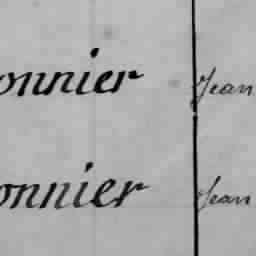 onnier Jean
onnier Jean